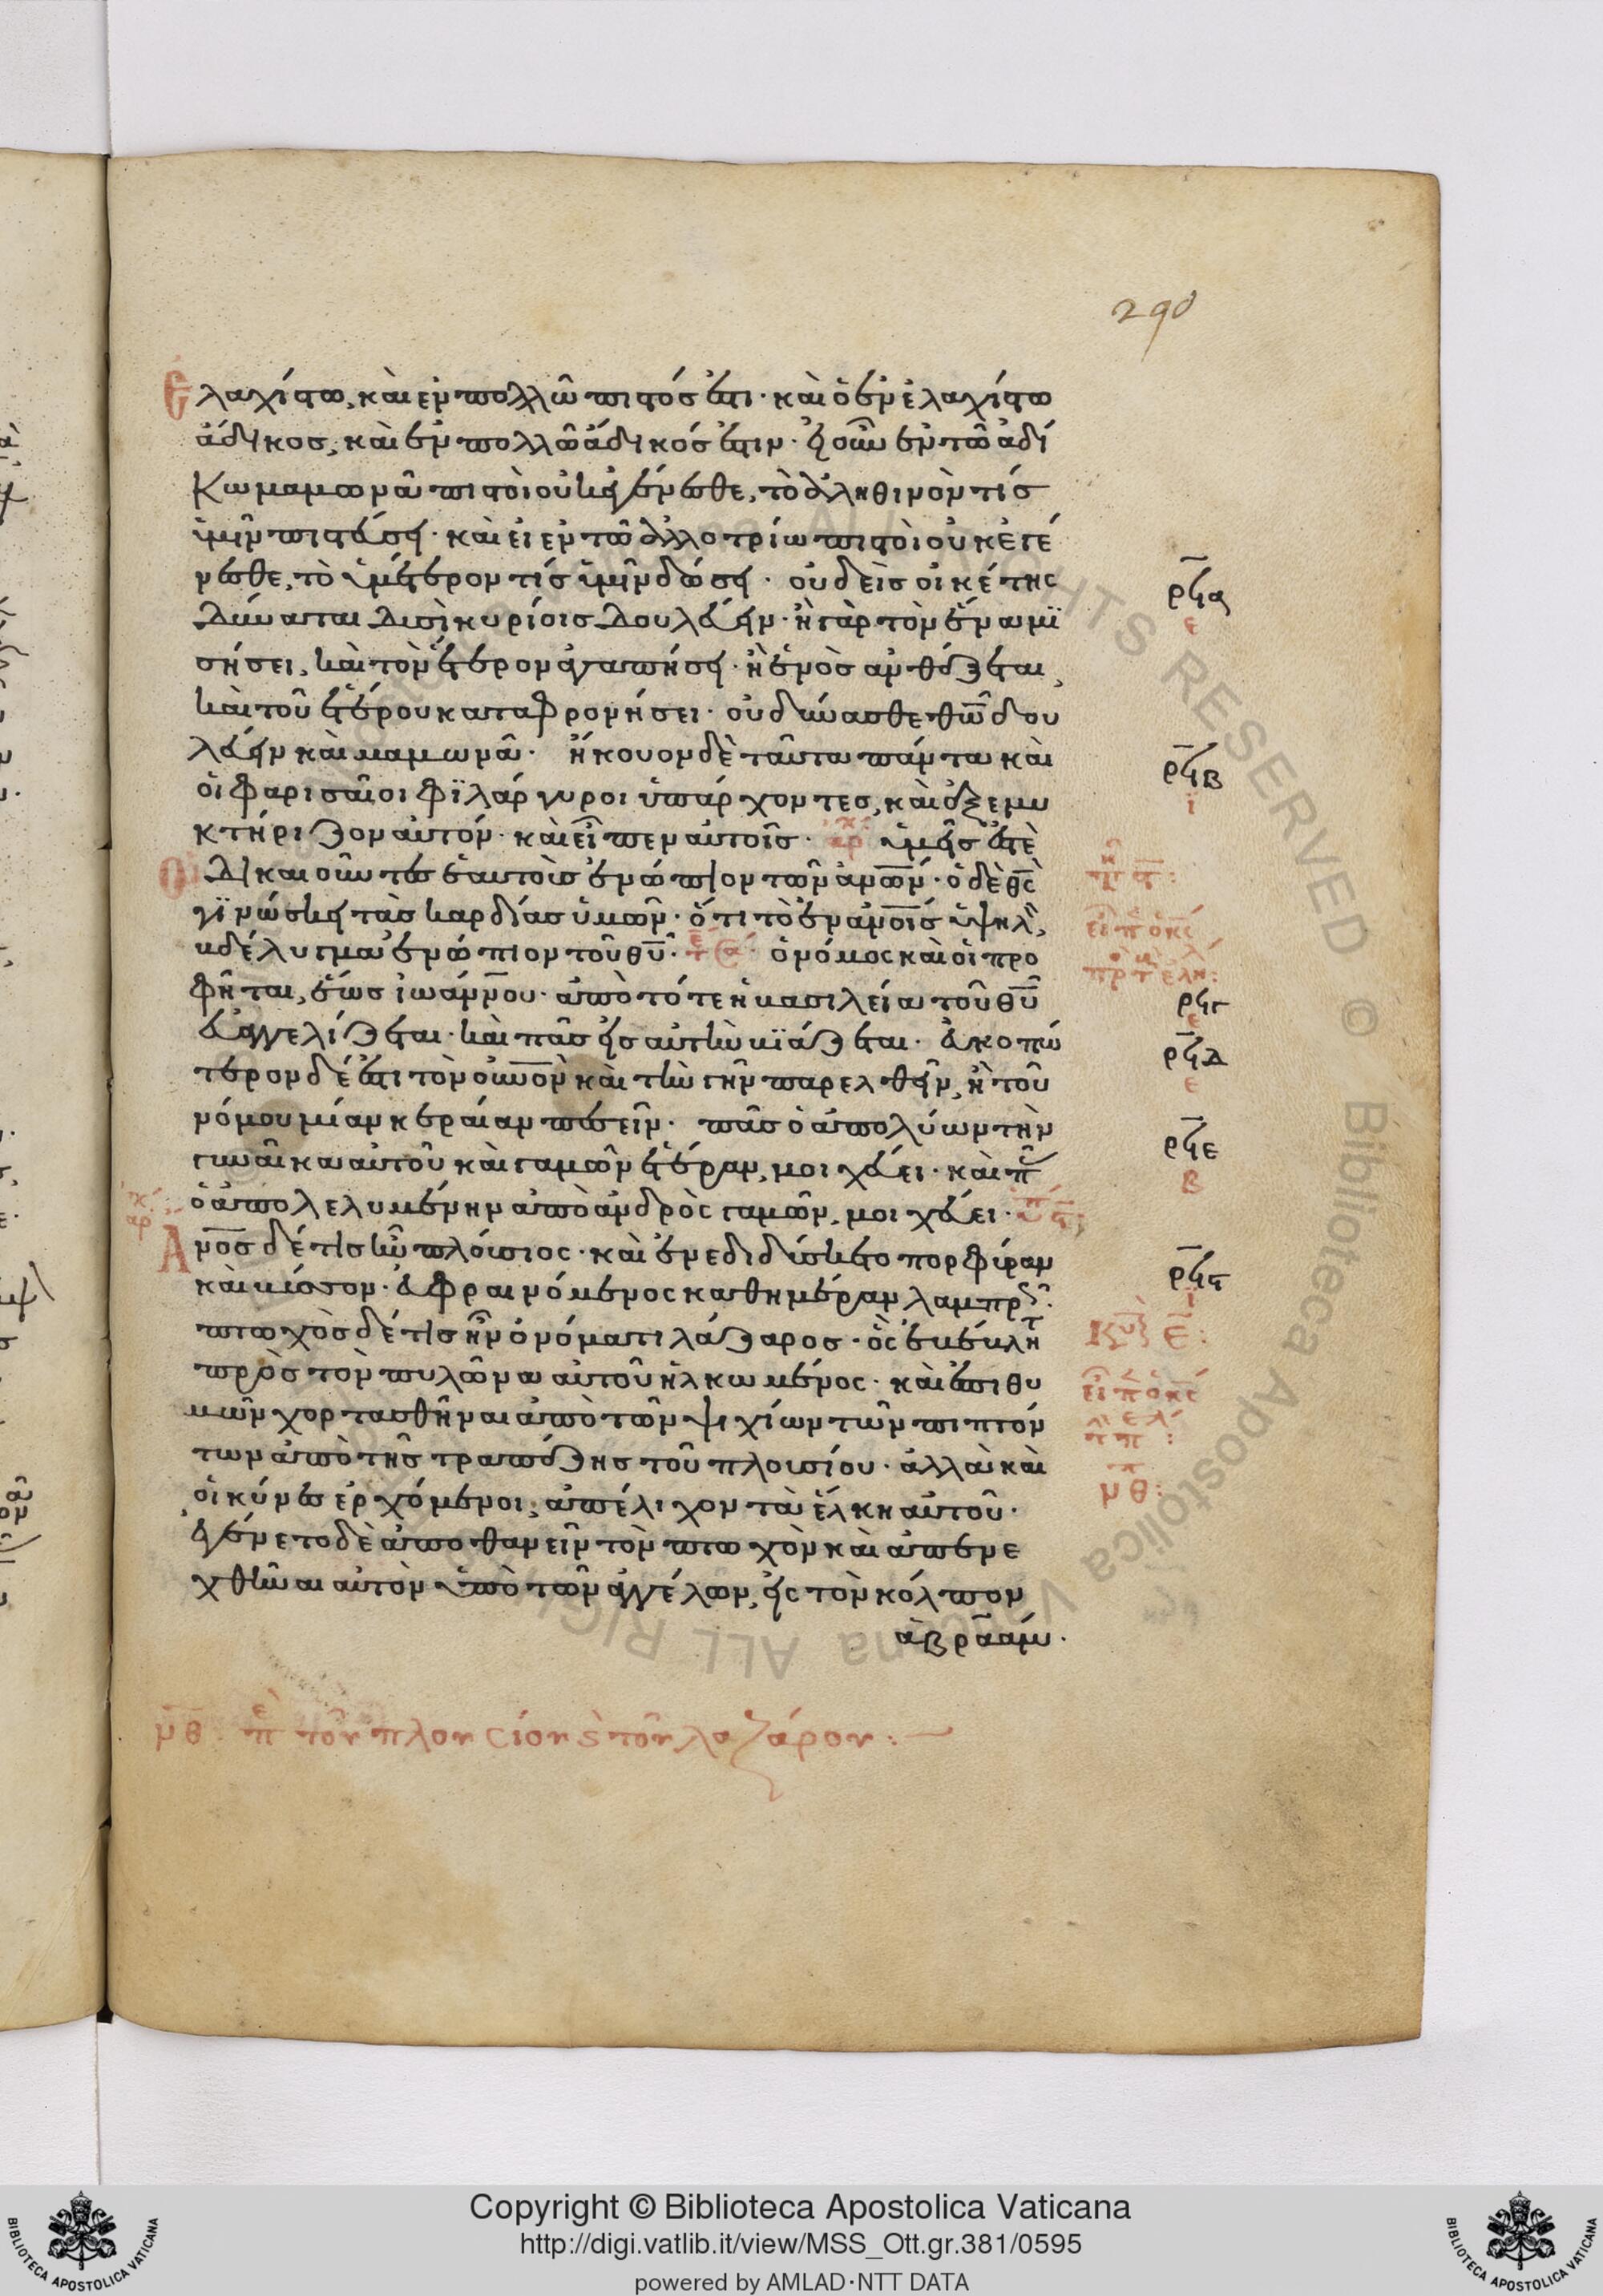 290
Ἐλαχίστω, καὶ εν πολλῶ πιστός ἐστι· καὶ ὁ ἐν ἐλαχίστω
ἄδικος, καὶ ἐν πολλῶ ἄδικός ἐστιν· εἰ οὖν ἐν τῶ ἀδί
κω μαμωνᾶ πιστοὶ οὐκ ἐγένεσθε, τὸ ἀληθινὸν τίς
ὑμῖν πιστεύσει· καὶ εἰ εν τῶ ἀλλοτρίω πιστοὶ οὐκ εγέ
νεσθε, τὸ ὑμέτερον τίς ὑμῖν δώσει· οὐδεὶς οἰκέτης
δύναται δυσὶ κυρίοις δουλεύειν· ἢ γὰρ τὸν ἕνα μϊ
σήσει, καὶ τὸν ἕτερον ἀγαπήσει· ἢ ἑνὸς ανθέξεται,
καὶ τοῦ ἑτέρου καταφρονήσει· οὐ δύνασθε θω̅ δου
λεύειν καὶ μαμωνᾶ· ἤκουον δὲ ταῦτα πάντα καὶ
οἱ φαρισαῖοι φϊλάργυροι ὑπάρχοντες, καὶ ἐξεμυ
κτήριζον αὐτόν· καὶ εἶπεν αὐτοῖς· ἀρχ ὑμεῖς ἐστὲ
Οἱ δικαιοῦντες ἑαυτοὺς ἐνώπιον τῶν ἀνω̅ν· ὁ δὲ θς̅
γϊνώσκει τὰς καρδίας ὑμῶν· ὅτι τὸ ἐν ἀνοι̅ς ὑψηλὸν,
βδέλυγμα ἐνώπιον τοῦ θυ̅· ὁ νόμος καὶ οἱ προ
φῆται, ἕως ἰωάννου· ἀπὸ τότε ἡ βασιλεία τοῦ θυ̅
εὐαγγελίζεται· καὶ πᾶς εἰς αὐτὴν βϊάζεται· εὐκοπώ
τερον δέ ἐστι τὸν οὐνο̅ν καὶ τὴν γῆν παρελθεῖν, ἢ τοῦ
νόμου μίαν κεραίαν πεσεῖν· πᾶς ὁ ἀπολύων τὴν
γυναῖκα αὐτοῦ καὶ γαμῶν ἑτέραν, μοιχεύει· καὶ πᾶς
ὁ ἀπολελυμένην ἀπὸ ἀνδρὸς γαμῶν, μοιχεύει·
Ἄνο̅ς δέ τις ἦν πλούσιος· καὶ ἐνεδιδύσκετο πορφύραν
καὶ βύσσον· εὐφραινόμενος καθημέραν λαμπρῶς·
πτωχὸς δέ τις ἦν ὀνόματι λάζαρος· ὃς ἐβέβλητ
πρὸς τὸν πυλῶνα αὐτοῦ ἡλκωμένος· καὶ ἐπιθυ
μῶν χορτασθῆναι ἀπὸ τῶν ψιχίων τῶν πιπτόν
των ἀπὸ τῆς τραπέζης τοῦ πλουσίου· ἀλλὰ καὶ
οἱ κύνες ἐρχόμενοι, ἀπέλιχον τὰ ἕλκη αὐτοῦ·
ἐγένετο δὲ ἀποθανεῖν τὸν πτωχὸν καὶ ἀπενε
χθῆναι αὐτὸν ὑπὸ τῶν ἀγγέλων, εἰς τὸν κόλπον
ἀβραάμ·
μθ· πε τοῦ πλουσίου καὶ τοῦ λαζάρου:
ρϟα
ε
ρϟβ
ι
ρϟγ
ε
ρϟδ
ε
ρϟε
β
ρϟϛ
ι
κυ ε:
εἶπεν ὁ κς
μθ:
Copyright © Biblioteca Apostolica Vaticana
http://digi.vatlib.it/view/MSS_Ott.gr.381/0595
powered by AMLAD·NTT DATA